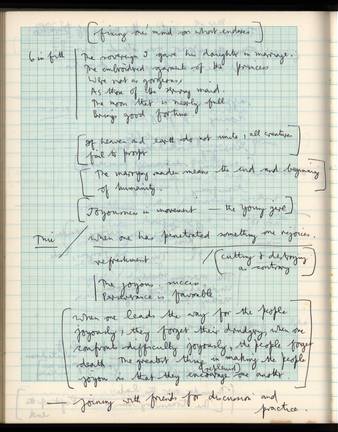 [fixing one's mind on what endures]
6 in fifth The sovereign I gave his daughter in marriage.
The embroidered garments of the princess
Were not as gorgeous
As those of the serving maid.
The moon that is nearly full
Brings good fortune
[If heaven and earth do not unite, all creatures
fail to prosper
[The marrying maiden means the end and beginning
of humanity.
[Joyousness in movement — the young girl]
Tui / When one has penetrated something one rejoices.
refreshment / (cutting & destroying
a contrary)
The joyous success
Perseverance is favorable
[when one leads the way for the people
joyously, they forget their drudgery, when one
confronts difficulty joyously, the people forget
death The greatest thing in making the people
joyous is that they encourage one another
— joining with friends for discussion and
practice.